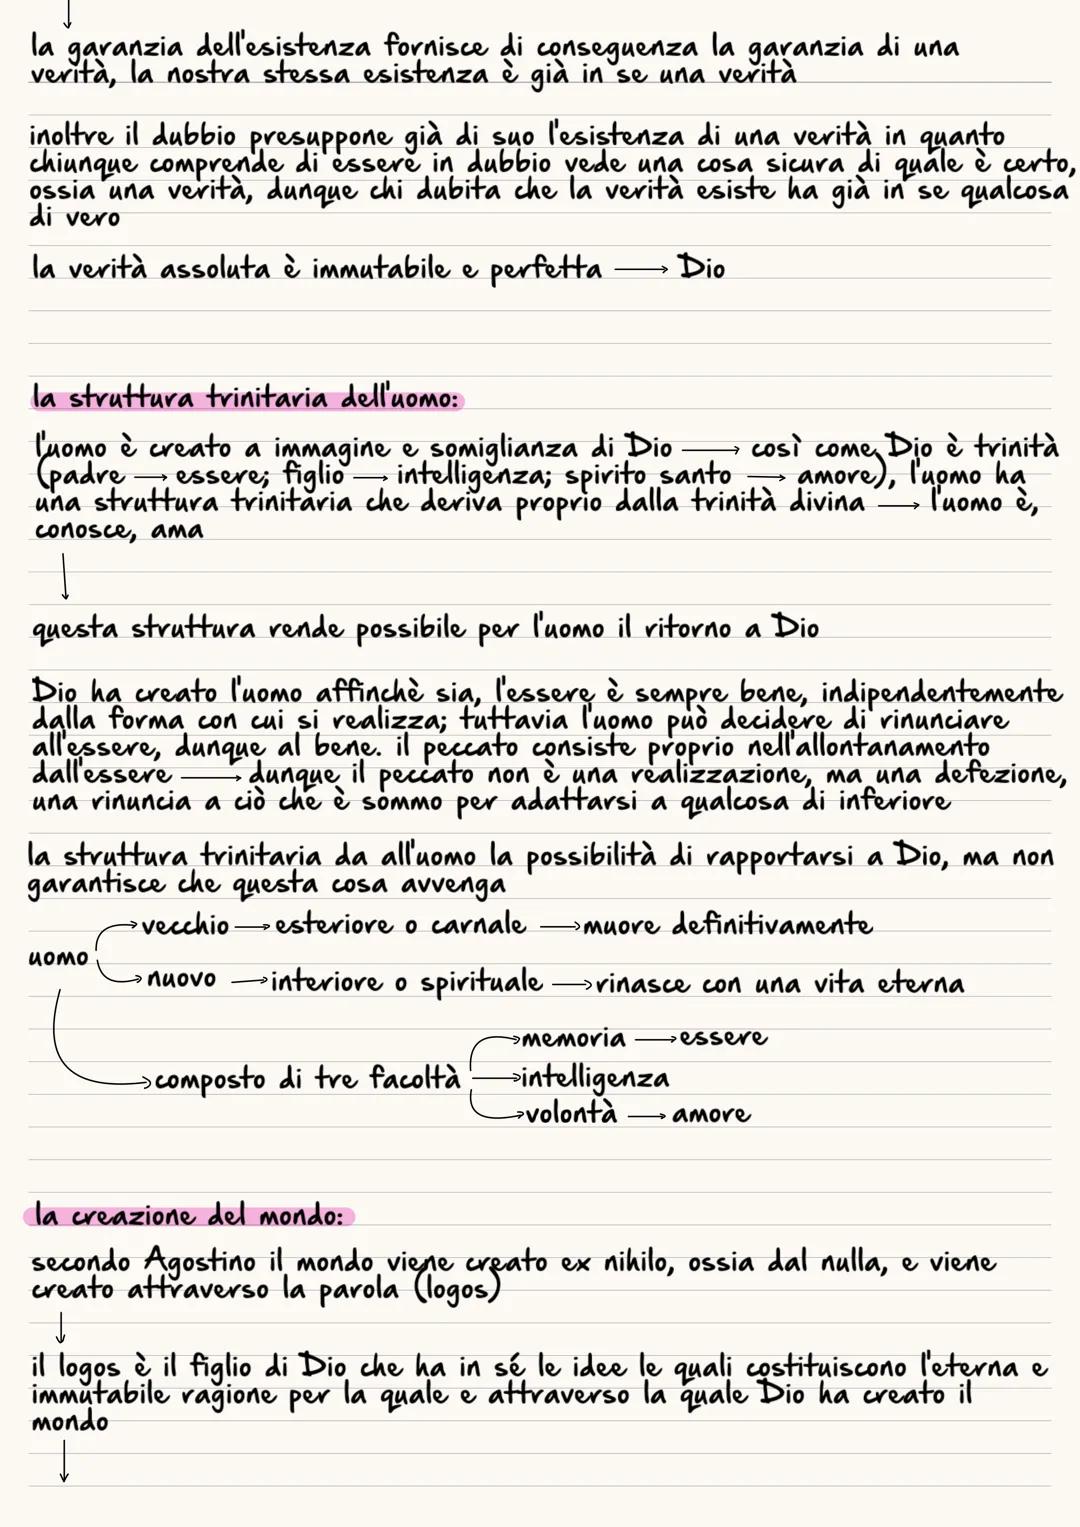 la garanzia dell'esistenza fornisce di conseguenza la garanzia di una
verità, la nostra stessa esistenza è già in se una verità
inoltre il dubbio presuppone già di suo l'esistenza di una verità in quanto
chiunque comprende di essere in dubbio vede una cosa sicura di quale è certo,
ossia una verità, dunque chi dubita che la verità esiste ha già in se qualcosa
di vero
la verità assoluta è immutabile e perfetta → Dio
la struttura trinitaria dell'uomo:
l'uomo è creato a immagine e somiglianza di Dio → così come Dio è trinità
(padre → essere; figlio → intelligenza; spirito santo → amore), l'uomo ha
una struttura trinitaria che deriva proprio dalla trinità divina → l'uomo è,
conosce, ama
questa struttura rende possibile per l'uomo il ritorno a Dio
Dio ha creato l'uomo affinchè sia, l'essere è sempre bene, indipendentemente
dalla forma con cui si realizza; tuttavia l'uomo può decidere di rinunciare
all'essere, dunque al bene. il peccato consiste proprio nell'allontanamento
dall'essere → dunque il peccato non è una realizzazione, ma una defezione,
una rinuncia a ciò che è sommo per adattarsi a qualcosa di inferiore
la struttura trinitaria da all'uomo la possibilità di rapportarsi a Dio, ma non
garantisce che questa cosa avvenga
vecchio → esteriore o carnale → muore definitivamente
uomo
nuovo → interiore o spirituale → rinasce con una vita eterna
memoria → essere
composto di tre facoltà → intelligenza
volontà → amore
la creazione del mondo:
secondo Agostino il mondo viene creato ex nihilo, ossia dal nulla, e viene
creato attraverso la parola (logos)
il logos è il figlio di Dio che ha in sé le idee le quali costituiscono l'eterna e
immutabile ragione per la quale e attraverso la quale Dio ha creato il
mondo